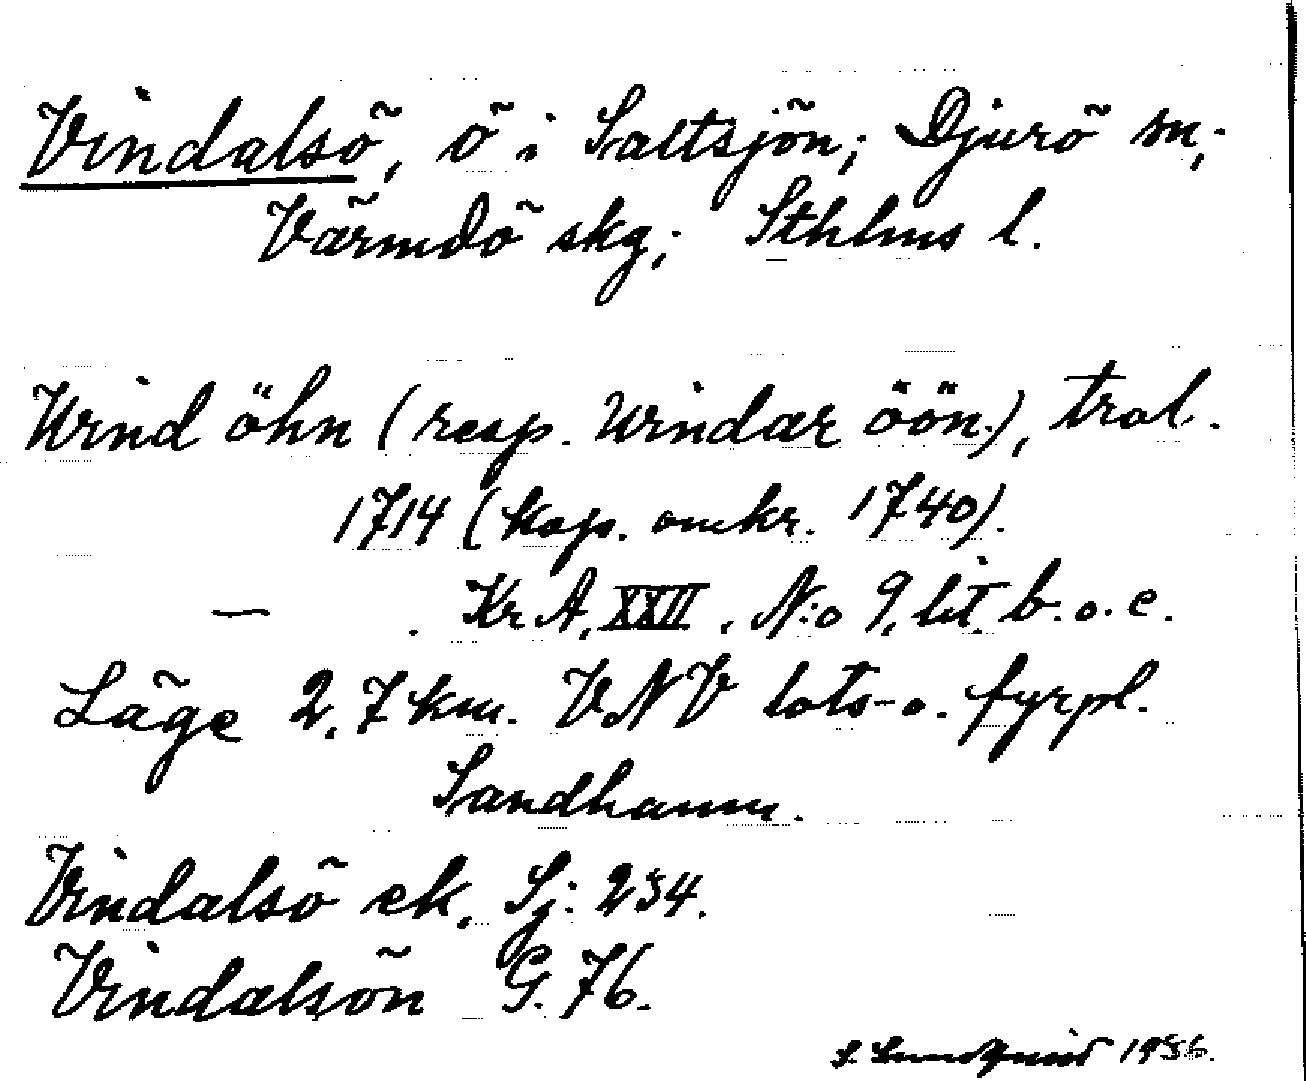 Vindalsö, ö i Saltsjön; Djurö sn;
Värmdö skg; Sthlms l.
Wind öhn (resp. Windar öön), trol.
1714 (kop. omkr. 1740).
— . Kr A, XXII, N:o 9, lit. b. o. c.
Läge 2,7 km. VNV lots- o. fyrpl.
Sandhamn.
Vindalsö ek. Sj: 234.
Vindalsön G. 76.
S. Lundquist 1956.